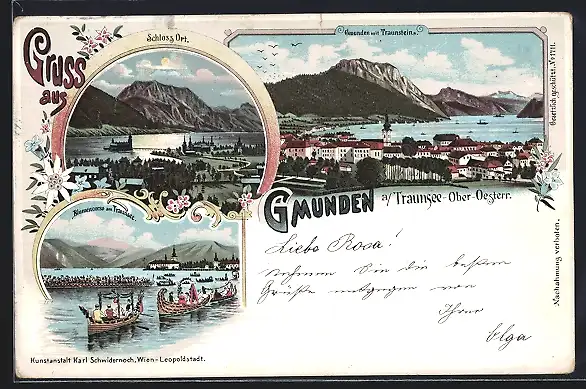 Gruss
aus
Schloss Ort.
Gmunden mit Traunstein.
Gesetzlich geschützt, No 1711.
Blumencorso am Traunsee.
GMUNDEN a/Traunsee-Ober-Oesterr.
Liebe Rosa!
nehmen Sie die besten
Grüße entgegen von
Ihrer
Olga
Nachahmung verboten.
Kunstanstalt Karl Schwidernoch, Wien-Leopoldstadt.